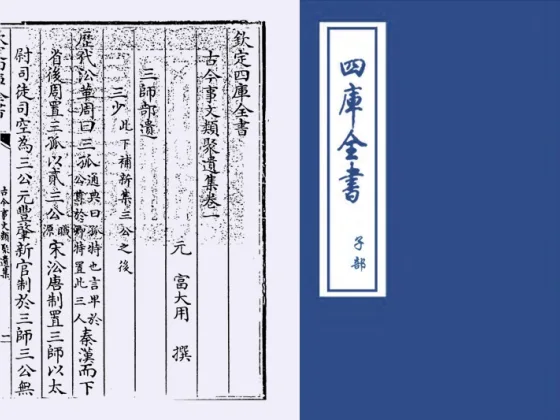 欽定四庫全書
古今事文類聚遺集卷一
元 富大用 撰
三師部遺
三少 此下補新集三公之後
歷代沿革周曰三孤 通典曰孤特也言卑於公尊於卿特置此三人 秦漢而下
省後周置三孤以貳三公 宋沿唐制置三師以太
尉司徒司空為三公元豐肇新官制於三師三公無
古今事文類聚遺集
四庫全書
子部